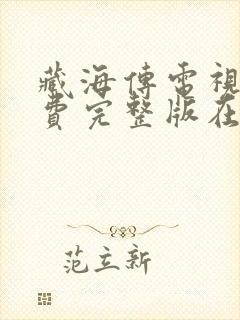 藏海傳電視
費完整版在
范立新